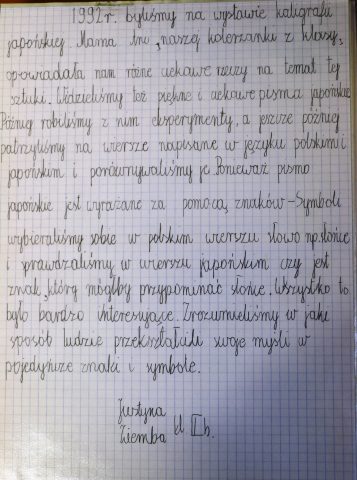 1992 r. byliśmy na wystawie kaligrafii
japońskiej. Mama Ino, naszej koleżanki z klasy,
opowiadała nam różne ciekawe rzeczy na temat tej
sztuki. Widzieliśmy też piękne i ciekawe pisma japońskie.
Później robiliśmy z nim eksperymenty, a jeszcze później
patrzyliśmy na wiersze napisane w języku polskim i
japońskim i porównywaliśmy je. Ponieważ pismo
japońskie jest wyrażane za pomocą znaków-Symboli
wybieraliśmy sobie w polskim wierszu słowo np. słońce
i sprawdzaliśmy w wierszu japońskim czy jest
znak, który mógłby przypominać słońce. Wszystko to
było bardzo interesujące. Zrozumieliśmy w jaki
sposób ludzie przekształcili swoje myśli w
pojedyńcze znaki i symbole.
Justyna
Ziemba kl II b.